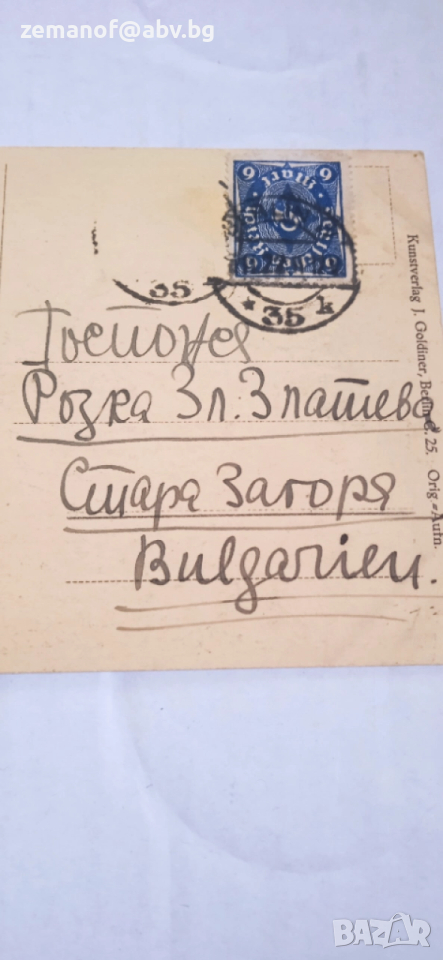 zemanof@abv.bg
6 Mark 6
6 6
35
* 35 k
Госпожа
Розка Зл. Златева
Стара Загора
Bulgarien.
Kunstverlag J. Goldiner, Berlin C. 25. Orig.-Aufn.
BAZAR